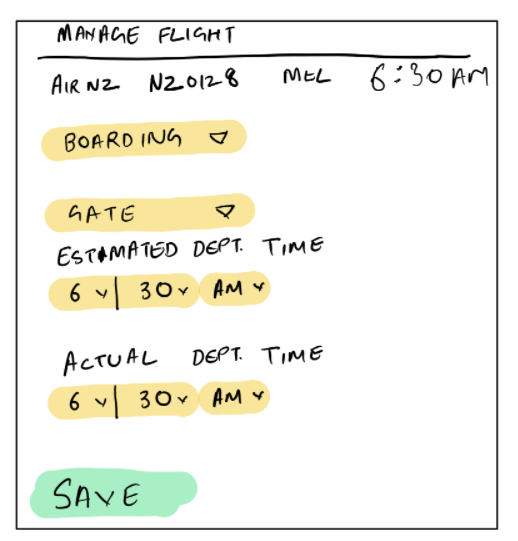 MANAGE FLIGHT
AIR NZ NZ0128 MEL 6:30 AM
BOARDING
GATE
ESTIMATED DEPT. TIME
6 30 AM
ACTUAL DEPT. TIME
6 30 AM
SAVE